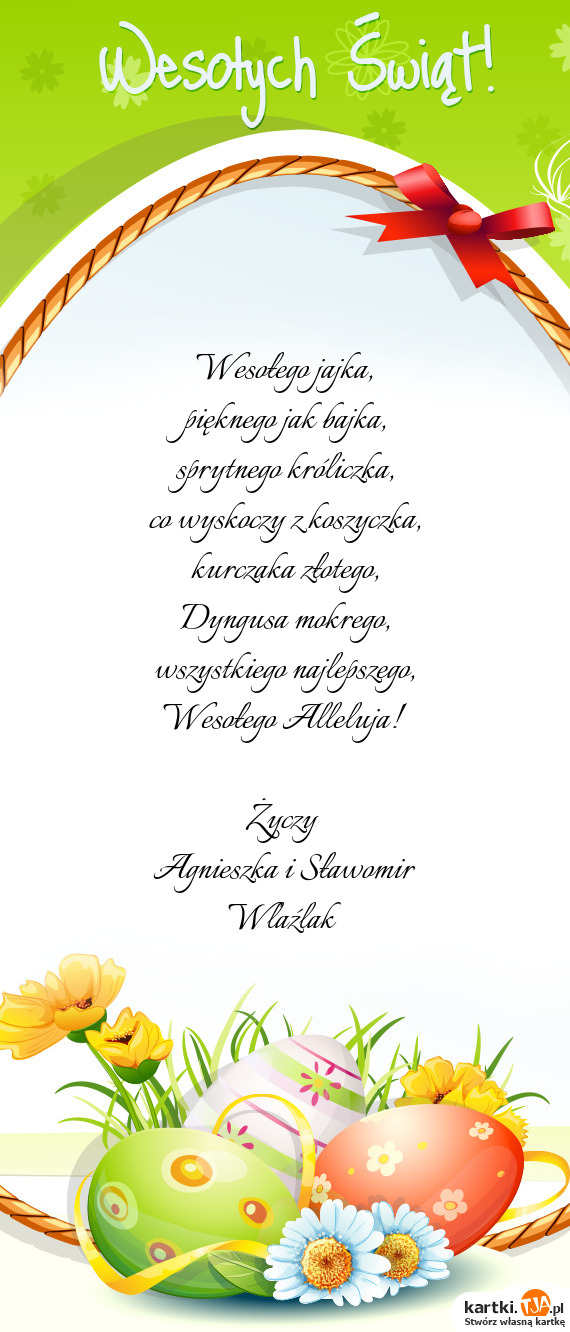 Wesołych Świąt!
Wesołego jajka,
pięknego jak bajka,
sprytnego króliczka,
co wyskoczy z koszyczka,
kurczaka złotego,
Dyngusa mokrego,
wszystkiego najlepszego,
Wesołego Alleluja!
Życzy
Agnieszka i Sławomir
Wlaźlak
kartki.TJA.pl
Stwórz własną kartkę